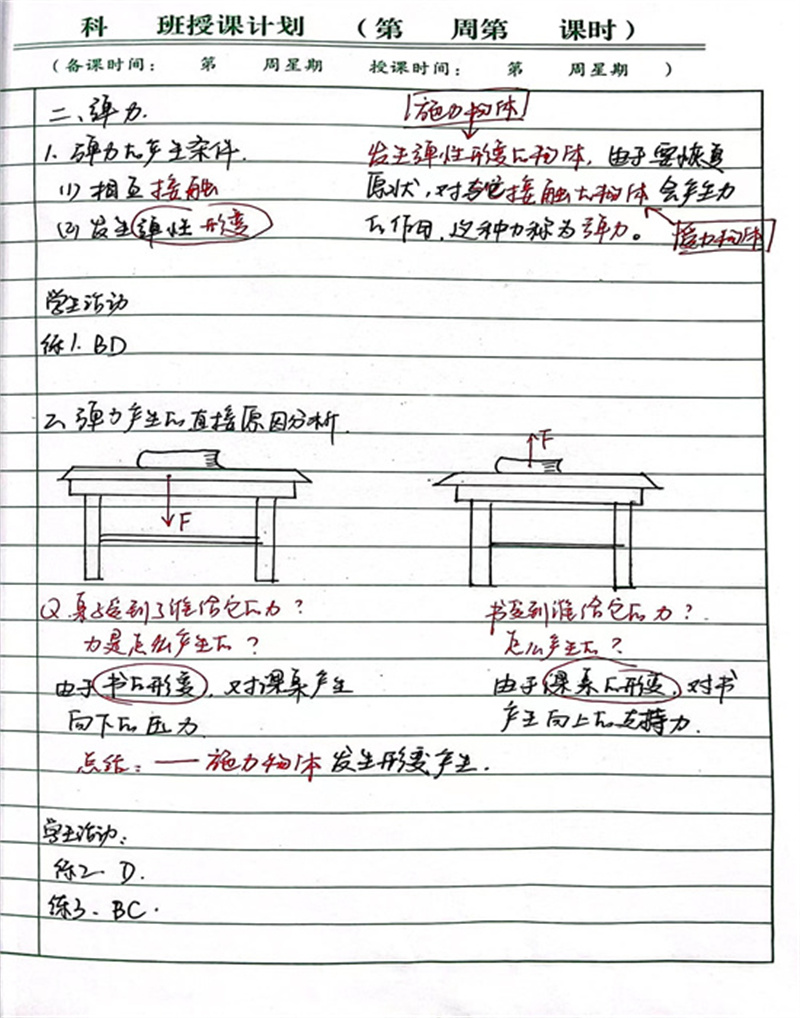 科 班授课计划 (第 周第 课时)
(备课时间: 第 周星期 授课时间: 第 周星期 )
二、弹力.
施力物体
1. 弹力的产生条件.
(1) 相互接触
(2) 发生弹性形变
发生弹性形变的物体, 由于要恢复
原状, 对与它接触的物体会产生力
的作用, 这种力称为弹力。
受力物体
学生活动
练1. BD
2、弹力产生的直接原因分析.
F
F
Q. 桌子受到了谁给它的力?
力是怎么产生的?
由于书的形变, 对课桌产生
向下的压力.
书受到谁给它的力?
怎么产生的?
由于课桌的形变, 对书
产生向上的支持力.
总结: — 施力物体发生形变产生.
学生活动:
练2、D.
练3、BC.